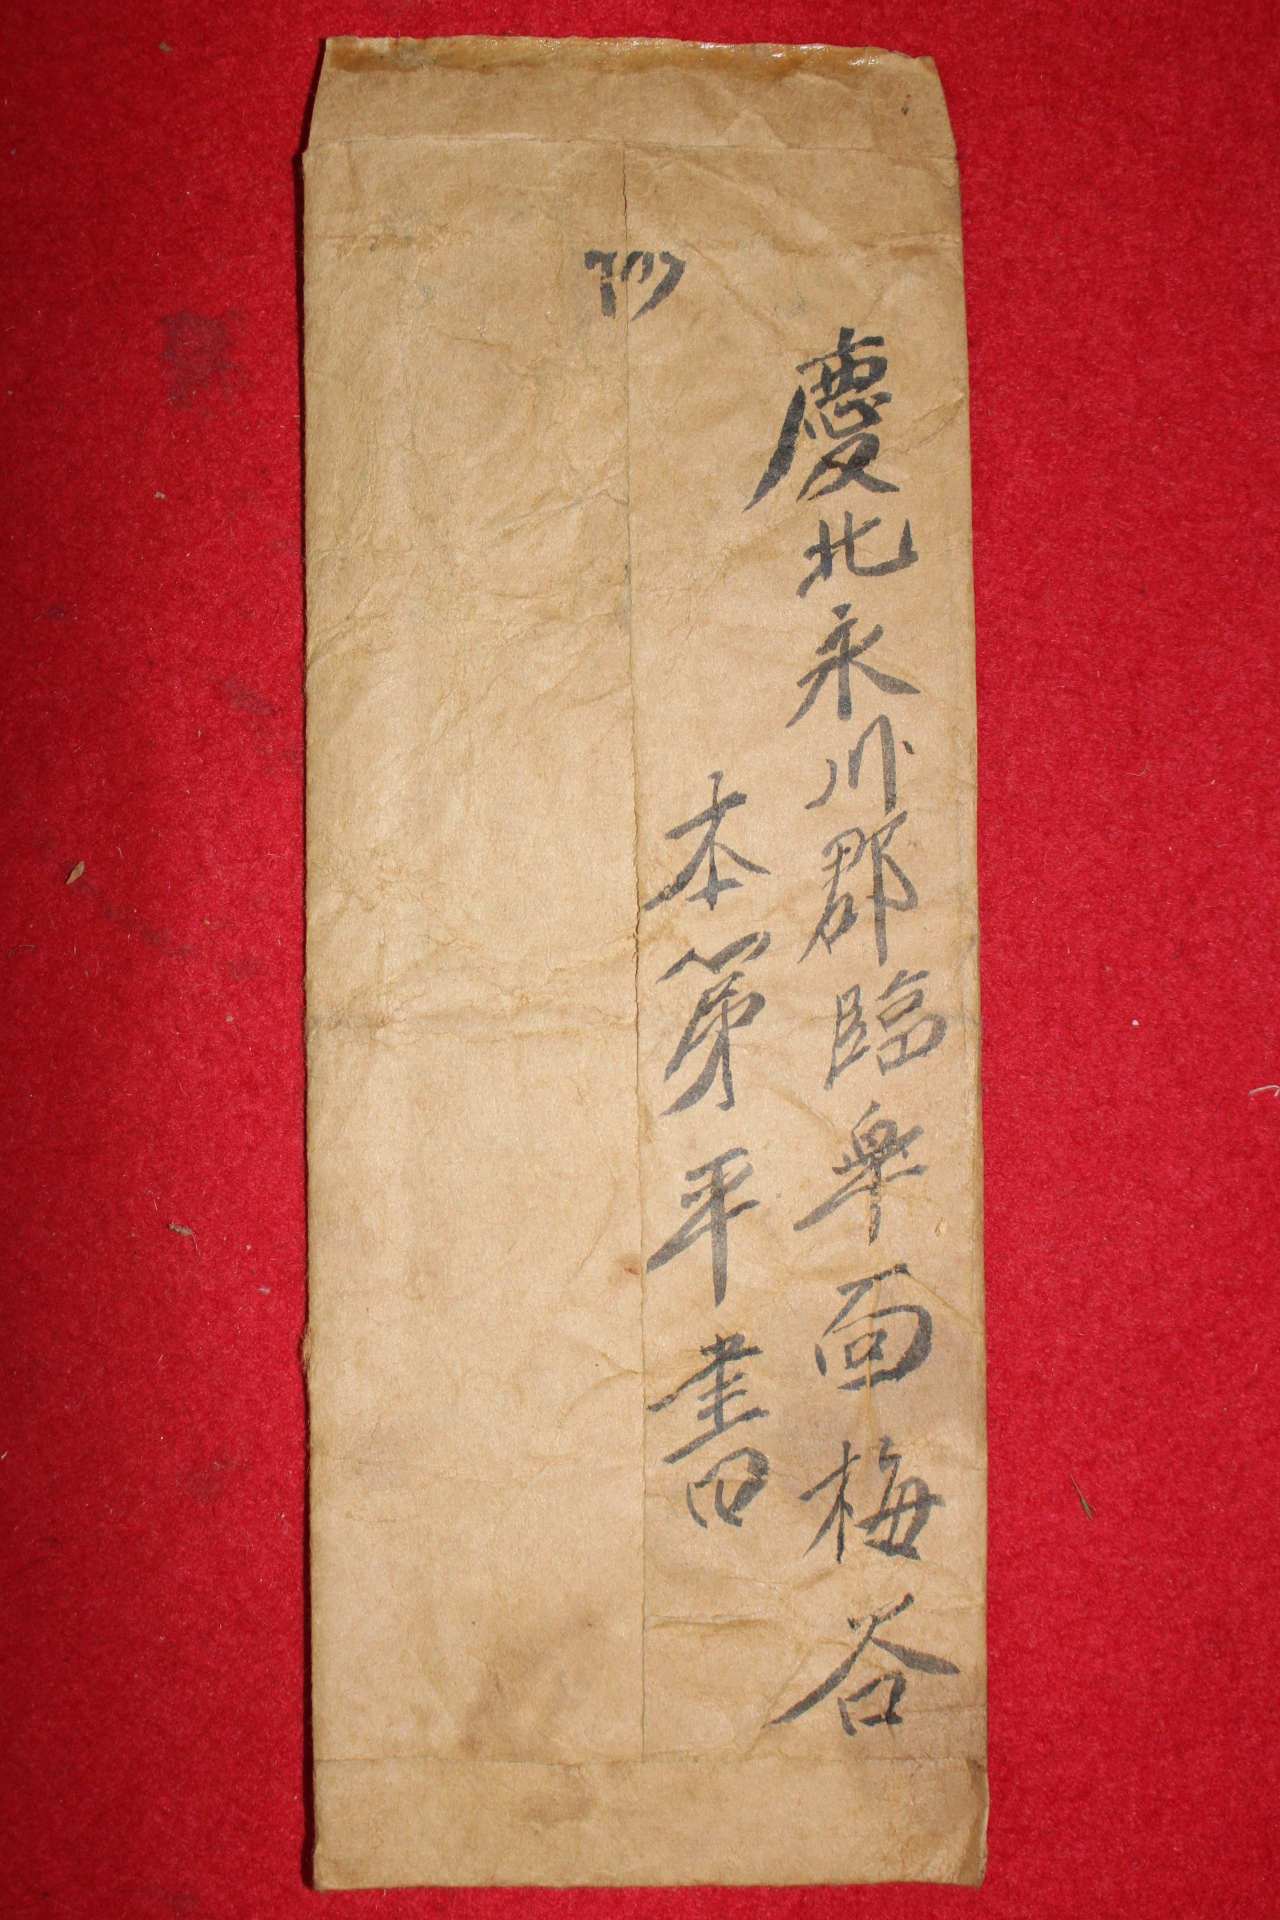 慶北永川郡臨皐面梅谷
本第平書